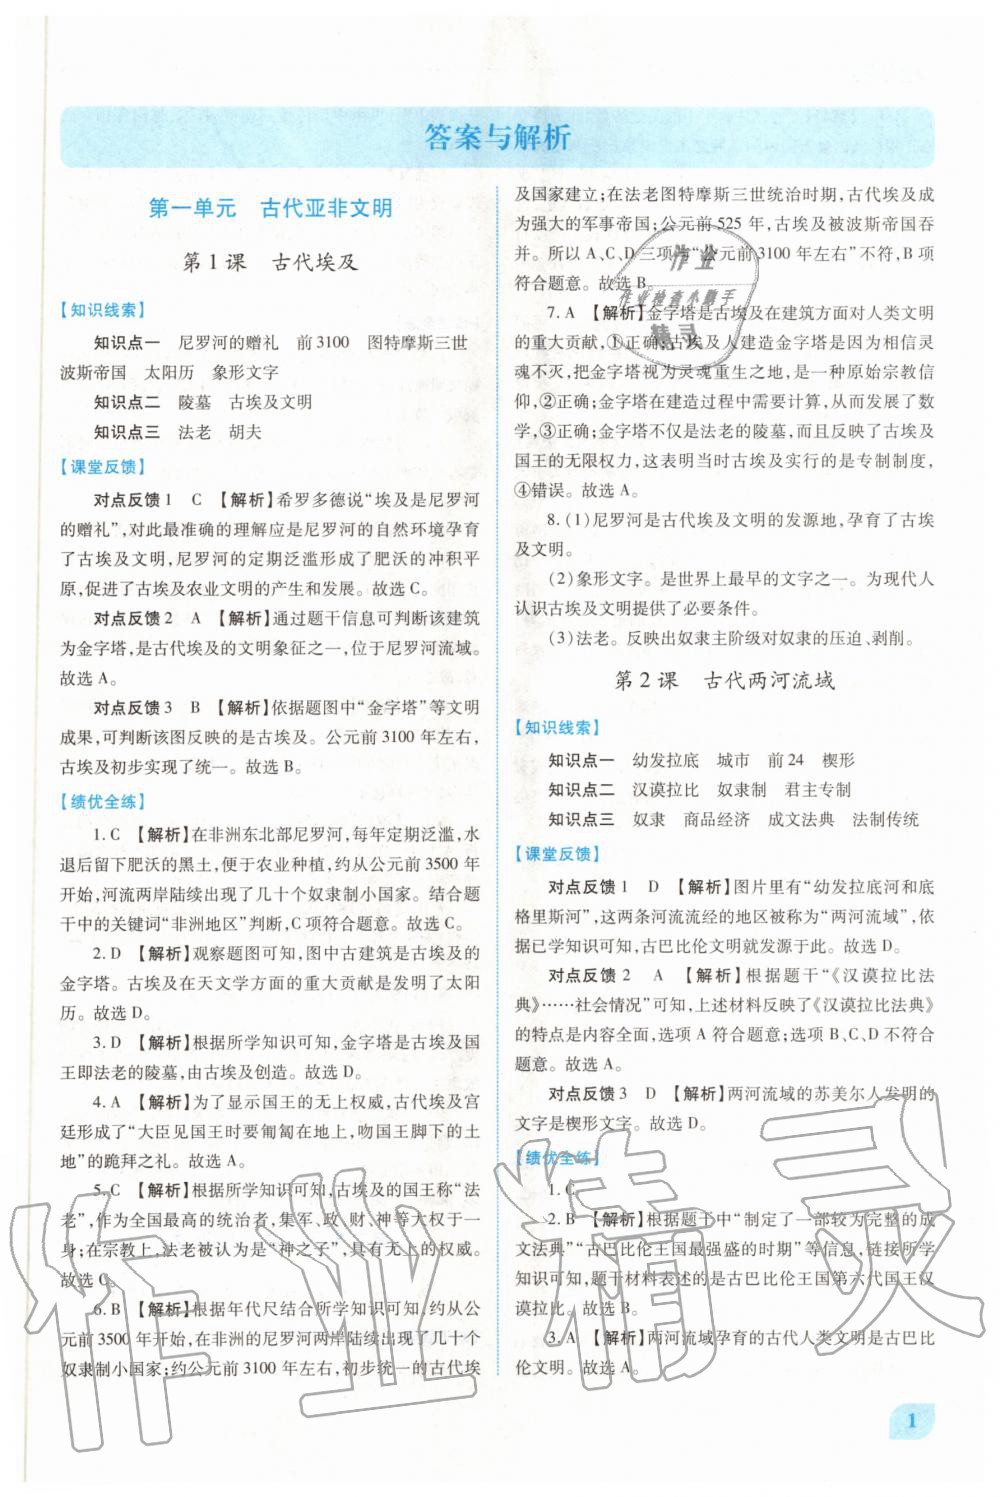 答案与解析
第一单元 古代亚非文明
第1课 古代埃及
【知识线索】
知识点一 尼罗河的赠礼 前3100 图特摩斯三世
波斯帝国 太阳历 象形文字
知识点二 陵墓 古埃及文明
知识点三 法老 胡夫
【课堂反馈】
对点反馈1 C 【解析】希罗多德说“埃及是尼罗河
的赠礼”,对此最准确的理解应是尼罗河的自然环境孕育
了古埃及文明,尼罗河的定期泛滥形成了肥沃的冲积平
原,促进了古埃及农业文明的产生和发展。故选C。
对点反馈2 A 【解析】通过题干信息可判断该建筑
为金字塔,是古代埃及的文明象征之一,位于尼罗河流域。
故选A。
对点反馈3 B 【解析】依据题图中“金字塔”等文明
成果,可判断该图反映的是古埃及。公元前3100年左右,
古埃及初步实现了统一。故选B。
【绩优全练】
1.C 【解析】在非洲东北部尼罗河,每年定期泛滥,水
退后留下肥沃的黑土,便于农业种植,约从公元前3500年
开始,河流两岸陆续出现了几十个奴隶制小国家。结合题
干中的关键词“非洲地区”判断,C项符合题意。故选C。
2.D 【解析】观察题图可知,图中古建筑是古埃及的
金字塔。古埃及在天文学方面的重大贡献是发明了太阳
历。故选D。
3.D 【解析】根据所学知识可知,金字塔是古埃及国
王即法老的陵墓,由古埃及创造。故选D。
4.A 【解析】为了显示国王的无上权威,古代埃及宫
廷形成了“大臣见国王时要匍匐在地上,吻国王脚前的土
地”的跪拜之礼。故选A。
5.C 【解析】根据所学知识可知,古埃及的国王称“法
老”,作为全国最高的统治者,集军、政、财、神等大权于一
身;在宗教上,法老被认为是“神之子”,具有无上的权威。
故选C。
6.B 【解析】根据年代尺结合所学知识可知,约从公
元前3500年开始,在非洲的尼罗河两岸陆续出现了几十个
奴隶制小国家;约公元前3100年左右,初步统一的古代埃
及国家建立;在法老图特摩斯三世统治时期,古代埃及成
为强大的军事帝国;公元前525年,古埃及被波斯帝国吞
并。所以A、C、D三项与“公元前3100年左右”不符,B项
符合题意。故选B。
7.A 【解析】金字塔是古埃及在建筑方面对人类文明
的重大贡献,①正确;古埃及人建造金字塔是因为相信灵
魂不灭,把金字塔视为灵魂重生之地,是一种原始宗教信
仰,②正确;金字塔在建造过程中需要计算,从而发展了数
学,③正确;金字塔不仅是法老的陵墓,而且反映了古埃及
国王的无限权力,这表明当时古埃及实行的是专制制度,
④错误。故选A。
8.(1)尼罗河是古代埃及文明的发源地,孕育了古埃
及文明。
(2)象形文字。是世界上最早的文字之一。为现代人
认识古埃及文明提供了必要条件。
(3)法老。反映出奴隶主阶级对奴隶的压迫、剥削。
第2课 古代两河流域
【知识线索】
知识点一 幼发拉底 城市 前24 楔形
知识点二 汉谟拉比 奴隶制 君主专制
知识点三 奴隶 商品经济 成文法典 法制传统
【课堂反馈】
对点反馈1 D 【解析】图片里有“幼发拉底河和底
格里斯河”,这两条河流流经的地区被称为“两河流域”,依
据已学知识可知,古巴比伦文明就发源于此。故选D。
对点反馈2 A 【解析】根据题干“《汉谟拉比法
典》……社会情况”可知,上述材料反映了《汉谟拉比法典》
的特点是内容全面,选项A符合题意;选项B、C、D不符合
题意。故选A。
对点反馈3 D 【解析】两河流域的苏美尔人发明的
文字是楔形文字。故选D。
【绩优全练】
1.C
2.B 【解析】根据题干中“制定了一部较为完整的成
文法典”“古巴比伦王国最强盛的时期”等信息,链接所学
知识可知,题干材料表述的是古巴比伦王国第六代国王汉
谟拉比。故选B。
3.A 【解析】两河流域孕育的古代人类文明是古巴比
伦文明。故选A。
1
作业
作业检查小助手
精灵
作业精灵